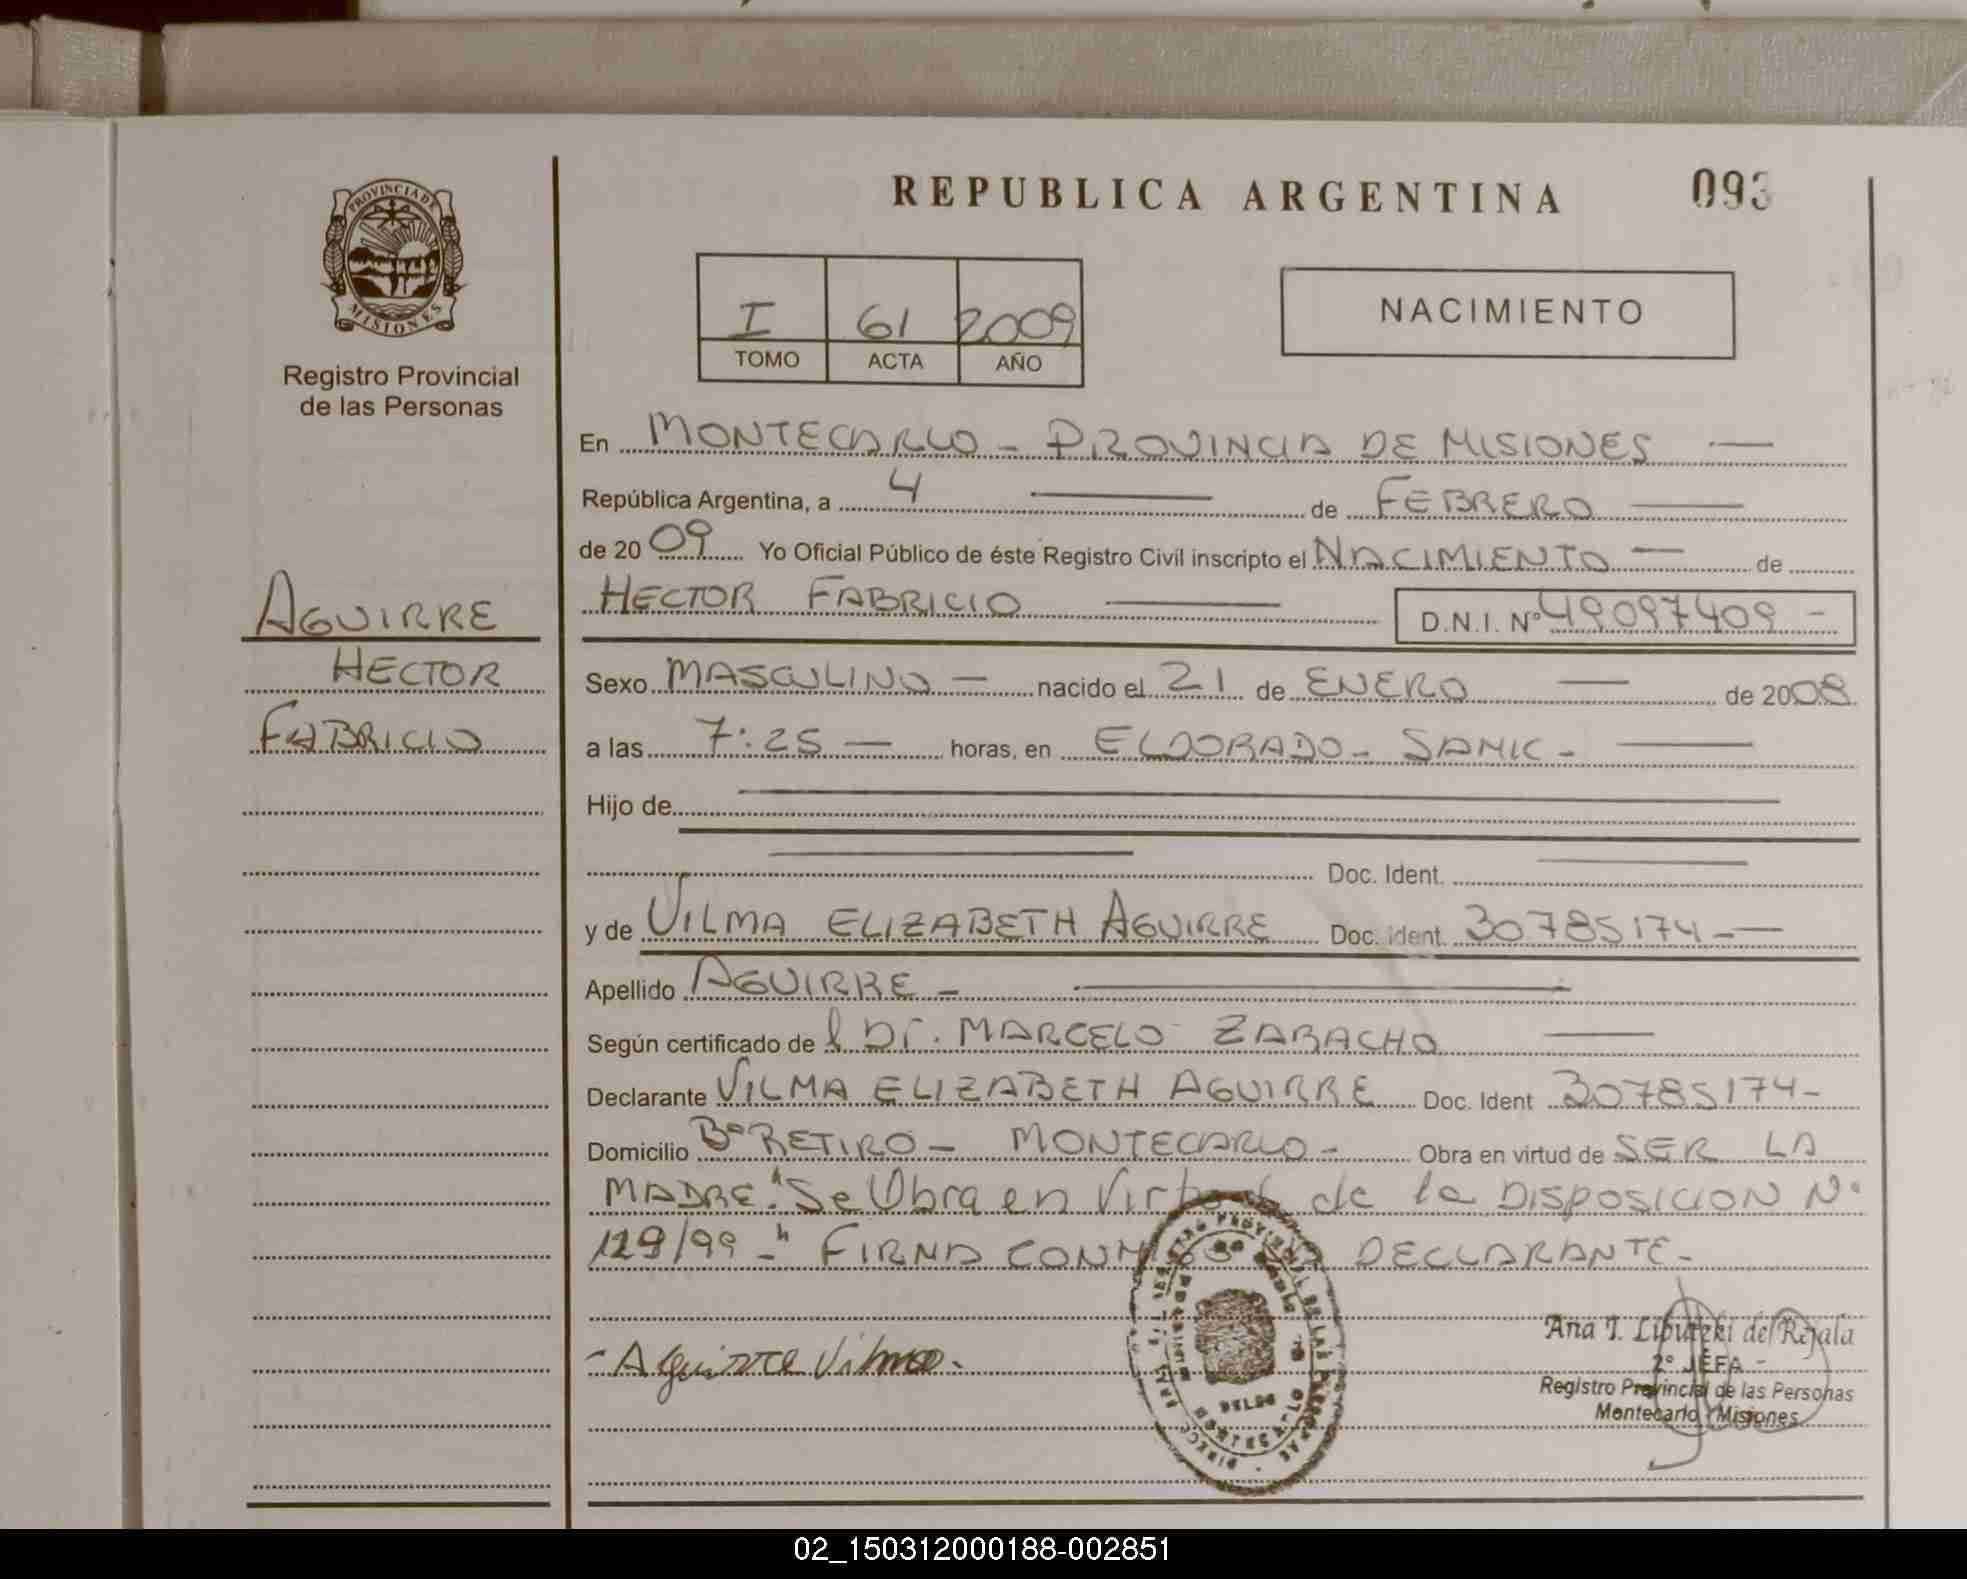 REPUBLICA ARGENTINA
093
PROVINCIA DE
MISIONES
Registro Provincial
de las Personas
I 61 2009
TOMO ACTA AÑO
NACIMIENTO
AGUIRRE
HECTOR
FABRICIO
En MONTECARLO - PROVINCIA DE MISIONES —
República Argentina, a 4 — de FEBRERO —
de 2009 Yo Oficial Público de éste Registro Civil inscripto el NACIMIENTO — de
HECTOR FABRICIO — D.N.I. Nº 49097409 -
Sexo MASCULINO — nacido el 21 de ENERO — de 2008
a las 7:25 — horas, en ELDORADO - SAMIC - —
Hijo de —
— Doc. Ident. —
y de VILMA ELIZABETH AGUIRRE Doc. Ident. 30785174 - —
Apellido AGUIRRE - —
Según certificado de l Dr. MARCELO ZARACHO —
Declarante VILMA ELIZABETH AGUIRRE Doc. Ident 30785174 -
Domicilio Bº RETIRO - MONTECARLO - Obra en virtud de SER LA
MADRE. "Se Obra en Virtud de la DISPOSICION Nº
129/99 -" FIRMA CONMIGO LA DECLARANTE -
- Aguirre Vilma.
Ana T. Liputzki del Rejala
2º JEFA -
Registro Provincial de las Personas
Montecarlo Misiones
02_150312000188-002851